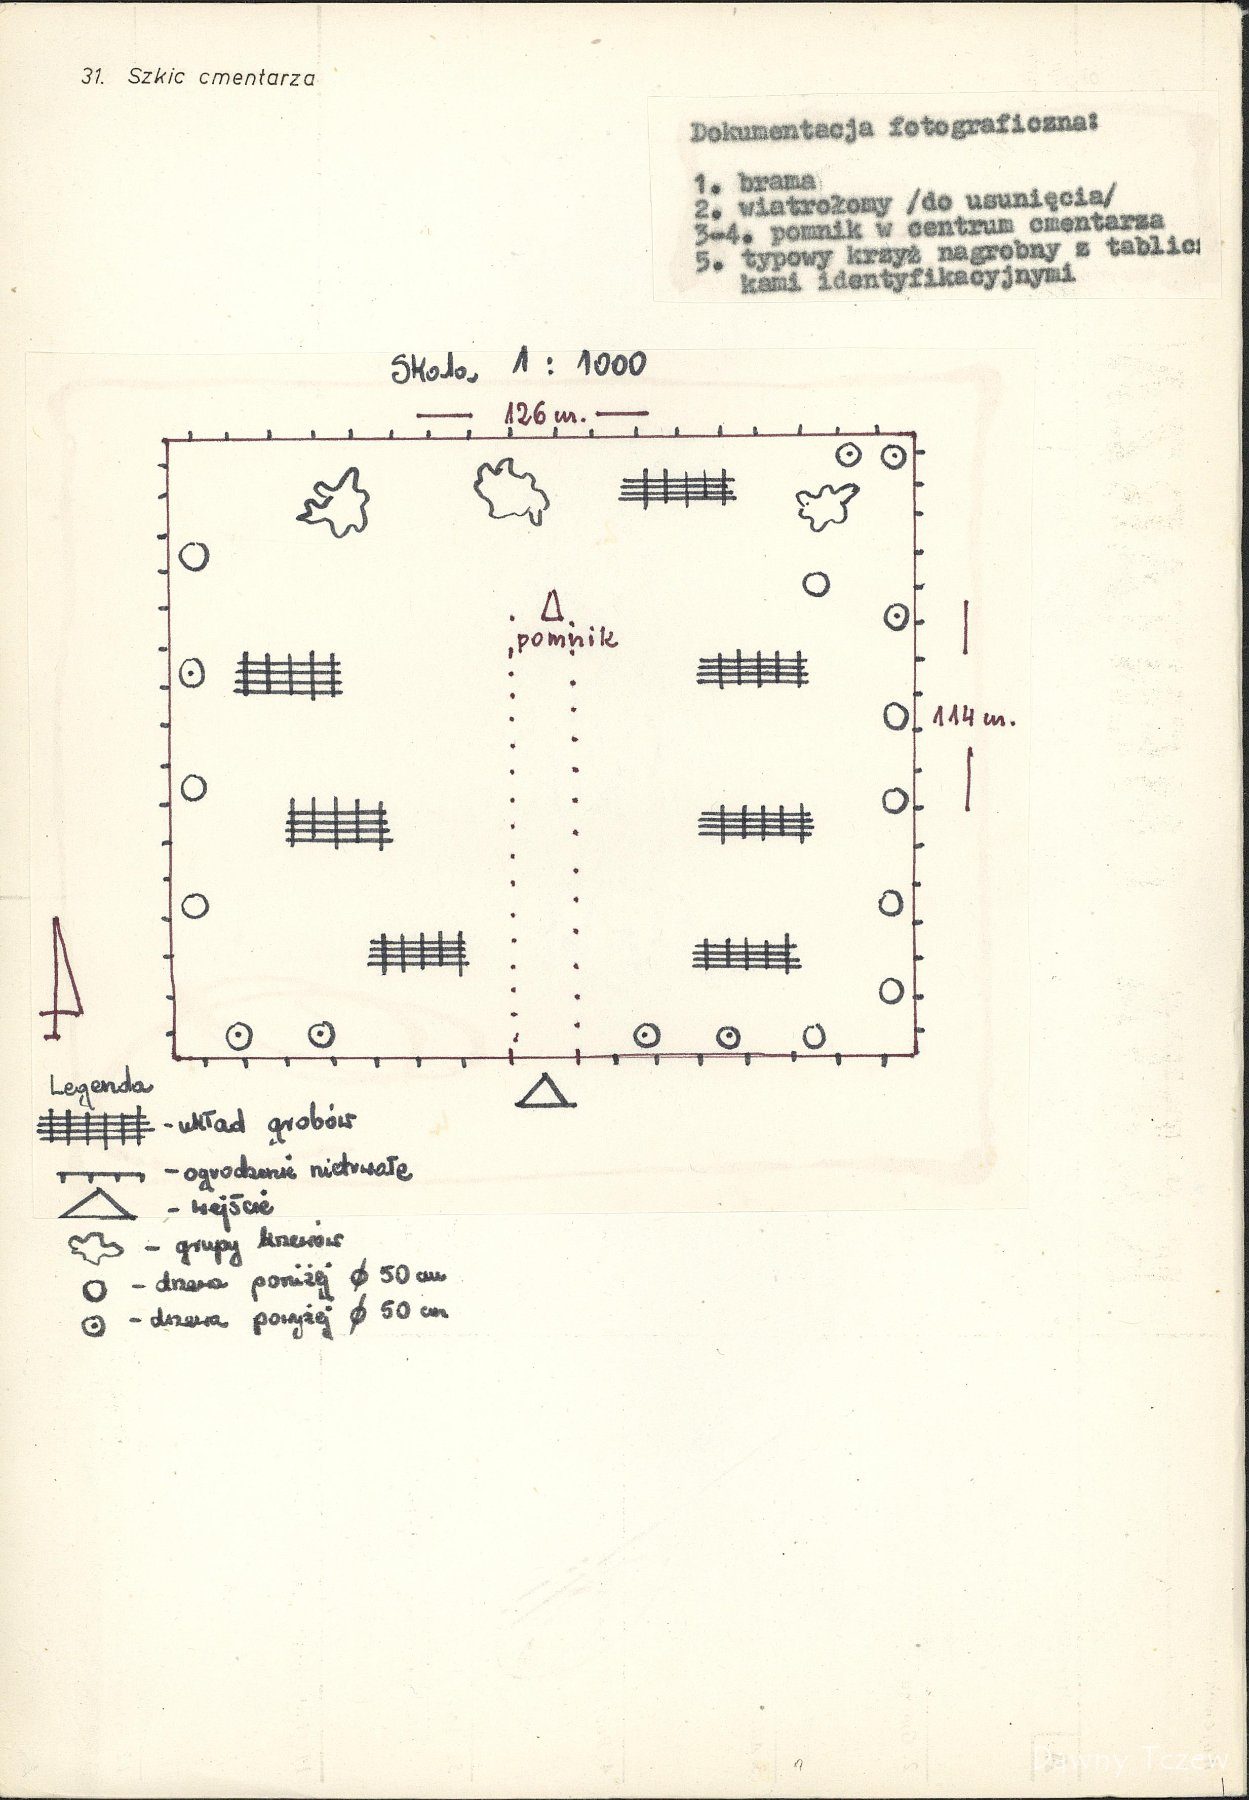 31. Szkic cmentarza
Dokumentacja fotograficzna:
1. brama
2. wiatrołomy /do usunięcia/
3-4. pomnik w centrum cmentarza
5. typowy krzyż nagrobny z tablicz
kami identyfikacyjnymi
Skala 1 : 1000
126 m.
pomnik
114 m.
Legenda
- układ grobów
- ogrodzenie nietrwałe
- wejście
- grupy krzewów
- drzewa poniżej ø 50 cm
- drzewa powyżej ø 50 cm
Dawny Tczew